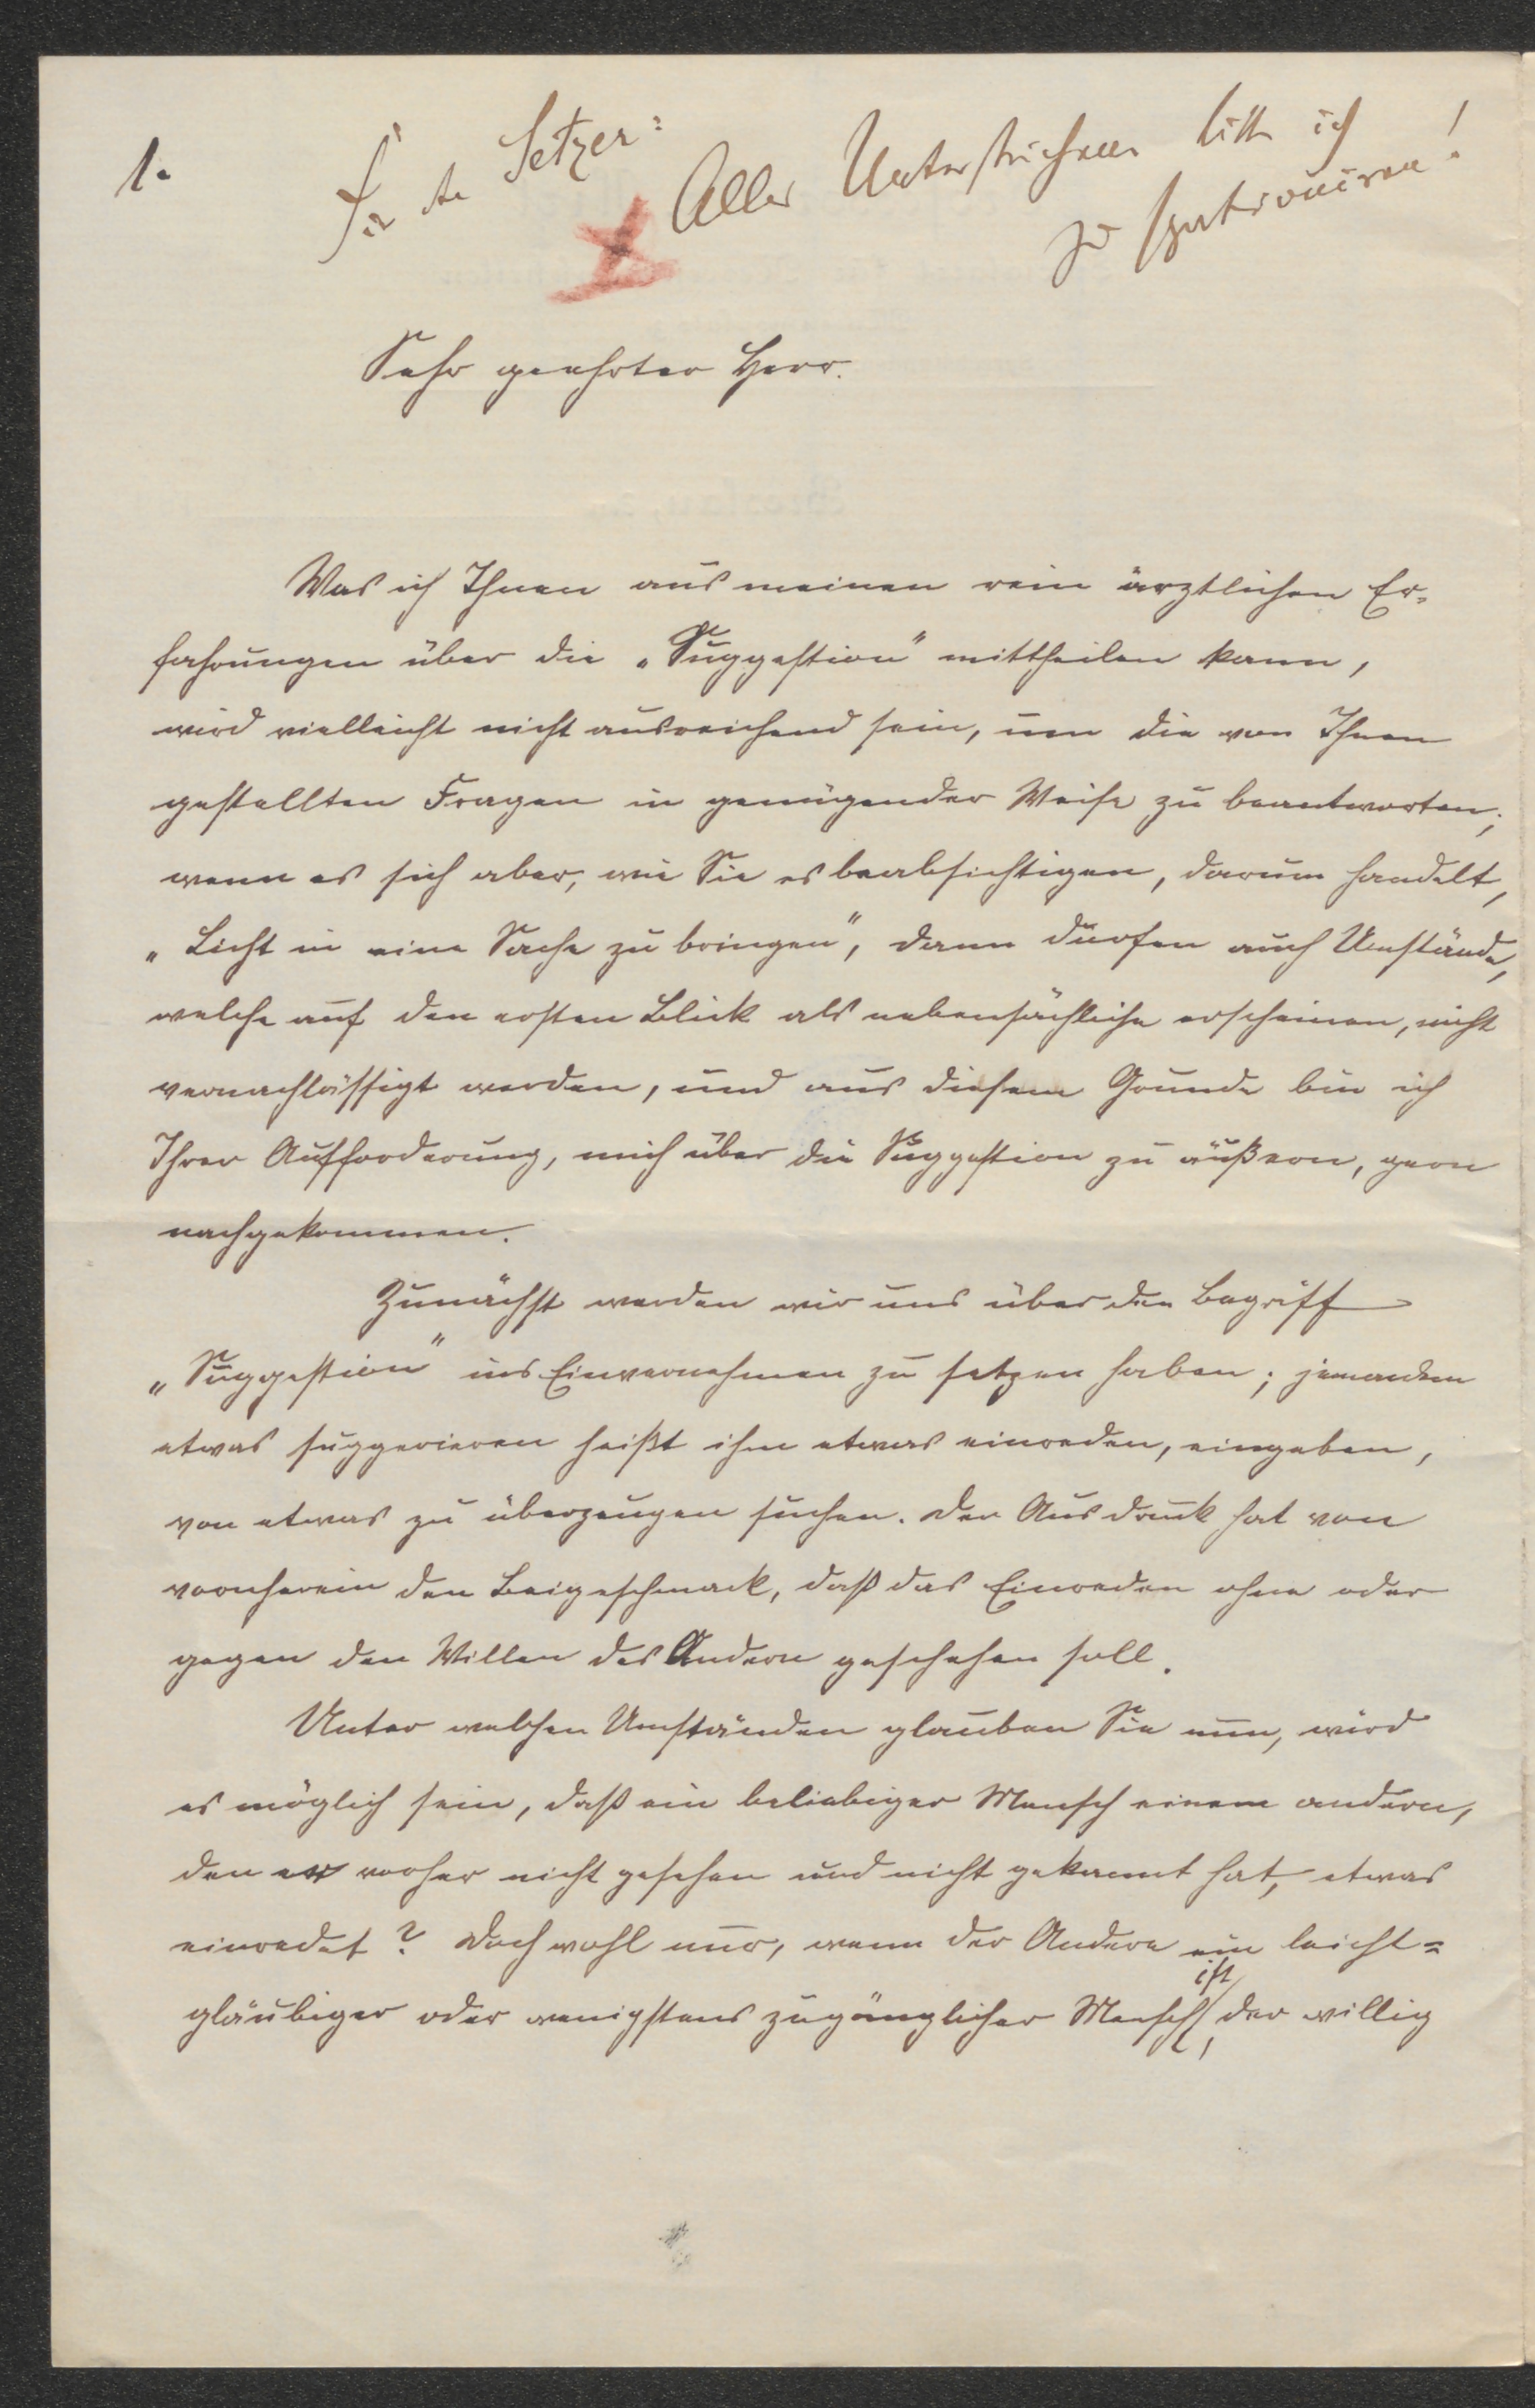 1.
Für den Setzer:
Alles Unterstrichene bitte ich
zu spationiren!
Sehr geehrter Herr.
Was ich Ihnen aus meinen rein ärztlichen Er-
fahrungen über die „Suggestion" mittheilen kann,
wird vielleicht nicht ausreichend sein, um die von Ihnen
gestellten Fragen in genügender Weise zu beantworten;
wenn es sich aber, wie Sie es beabsichtigen, darum handelt,
„Licht in eine Sache zu bringen", dann dürfen auch Umstände,
welche auf den ersten Blick als nebensächliche erscheinen, nicht
vernachlässigt werden, und aus diesem Grunde bin ich
Ihrer Aufforderung, mich über die Suggestion zu äußern, gern
nachgekommen.
Zunächst werden wir uns über den Begriff
„Suggestion" ins Einvernehmen zu setzen haben; jemandem
etwas suggerieren heißt ihm etwas einreden, eingeben,
von etwas zu überzeugen suchen. Der Ausdruck hat von
vornherein den Beigeschmack, daß das Einreden ohne oder
gegen den Willen des Andern geschehen soll.
Unter welchen Umständen glauben Sie nun, wird
es möglich sein, daß ein beliebiger Mensch einem andern,
den er vorher nicht gesehen und nicht gekannt hat, etwas
einredet? Doch wohl nur, wenn der Andere ein leicht=
gläubiger oder wenigstens zugänglicher Mensch ist, der willig